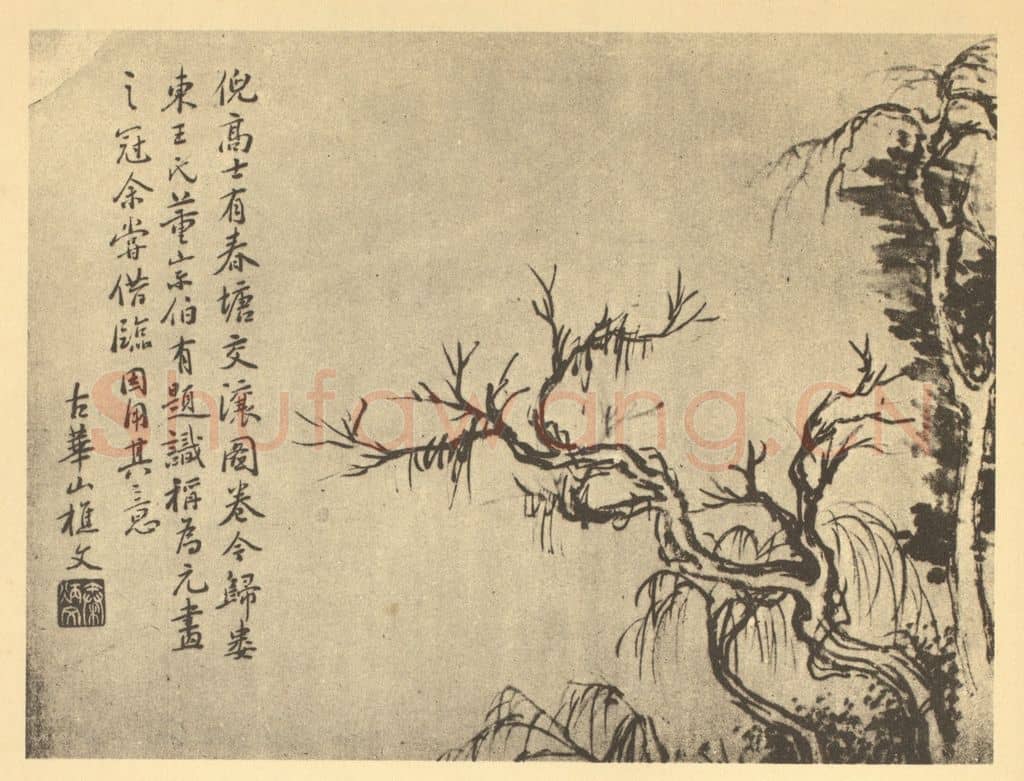 倪高士有春塘交瀼圖卷今歸婁
東王氏董宗伯有題識稱為元畫
之冠余嘗借臨因用其意
古華山樵文
秦炳文
Shufawang.CN